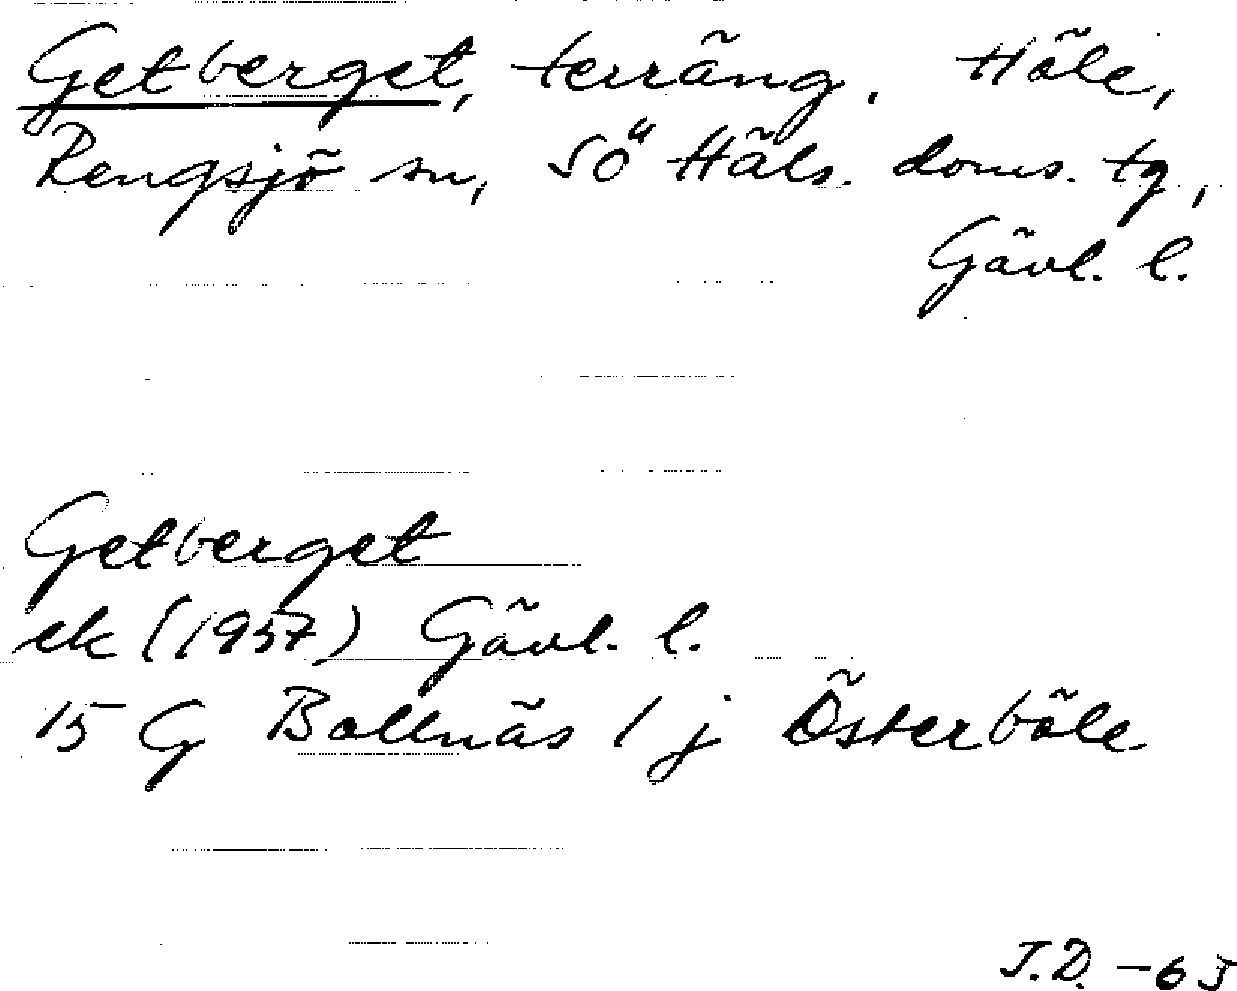 Getberget, terräng. Höle,
Rengsjö sn, Sö Häls. doms. tg,
Gävl. l.
Getberget
ek (1957) Gävl. l.
15 G Bollnäs 1 j Österböle
J.D. -63